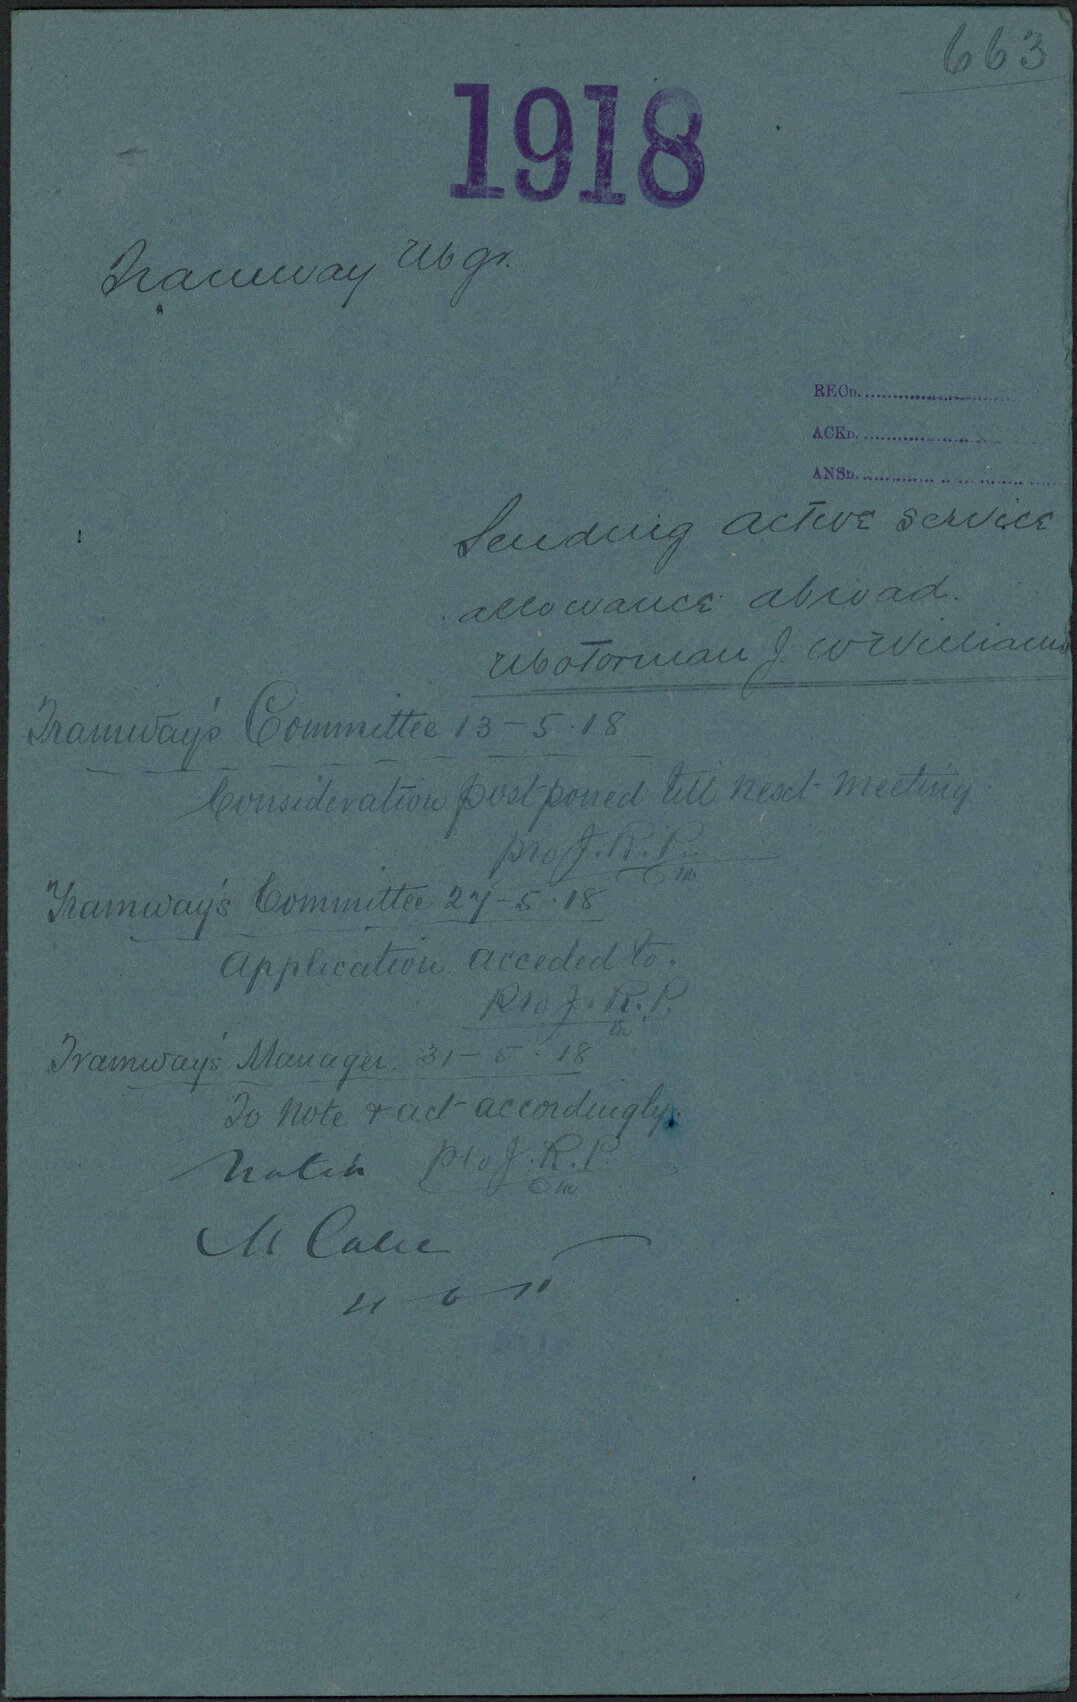 663
1918
Tramway Mgr.
RECD.
ACKD.
ANSD.
Sending active service
allowance abroad.
Motorman J. W Williams
Tramway's Committee 13-5-18
Consideration postponed till next meeting
pro J.R.P.
Tramway's Committee 27-5-18
Application acceded to.
Pro J.R.P.
Tramway's Manager. 31-5-18
To note & act accordingly.
Noted pro J.R.P.